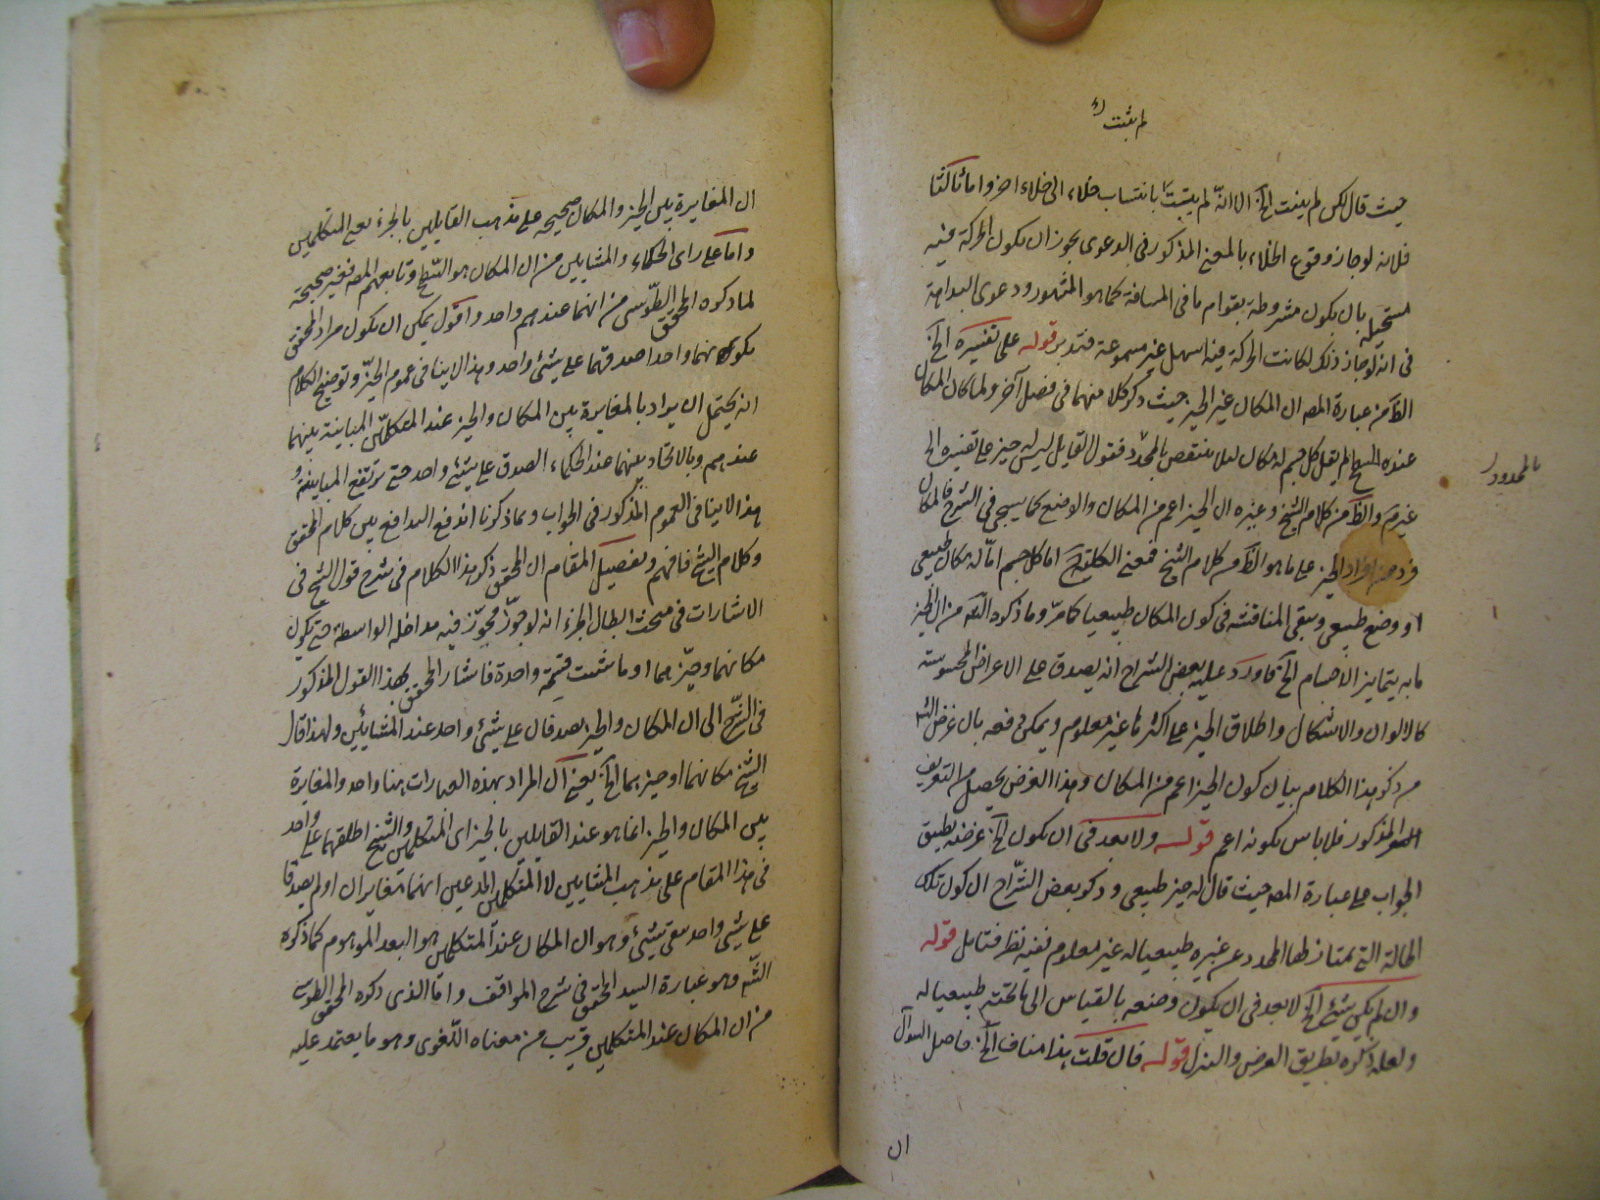 لم يثبت
حيث قال لكن لم يثبت الخ الا انه لم يثبت بانتساب خلاء الى خلاء اخر واما ثالثا
فلانه لو جاز وقوع الخلاء بالمعنى المذكور في الدعوى يجوز ان يكون الحركة فيه
مستحيلة بان يكون مشروطة بقوام ما في المسافة كما هو المشهور ودعوى البداهة
في انه لو جاز ذلك لكانت الحركة فيه اسهل غير مسموعة فتدبر قوله على تفسيره الخ
الظ من عبارة المص ان المكان غير الحيز حيث ذكر كلا منهما في فصل آخر ولما كان المكان
عنده السطح لم يقل كل جسم له مكان لئلا ينتقض بالمحدد فقول القايل ليس له حيز على تفسيره الخ
غير والظ من كلام الشيخ وغيره ان الحيز اعم من المكان والوضع كما يسيجي في الشرح فالمكان
بالمحدود
فرد من افراد الحيز على ما هو الظ من كلام الشيخ فمعنى الكلية اما كل جسم اما له مكان طبيعي
او وضع طبيعي وبقي المناقشة في كون المكان طبيعيا كما مر وما ذكره الش من ان الحيز
ما به يتمايز الاجسام الخ فاورد عليه بعض الشراح انه يصدق على الاعراض المحسوسة
كالالوان والاشكال واطلاق الحيز على اكثرها غير معلوم ويمكن دفعه بان غرض الش
من ذكر هذا الكلام بيان كون الحيز اعم من المكان وهذا الغرض يحصل من التعريف
المذكور فلا باس بكونه اعم قوله ولا بعد في ان يكون الخ غرضه تطبيق
الجواب على عبارة المص حيث قال له حيز طبيعي وذكر بعض الشراح ان كون تلك
الحالة التي يمتاز بها المحدد عن غيره طبيعيا له غير معلوم ففيه نظر فتامل قوله
وان لم يكن شئ الخ لا بعد في ان يكون وضعه بالقياس الى ما تحته طبيعيا له
ولعله ذكره بطريق الفرض والتنزل قوله فان قلت هذا مناف الخ حاصل السؤال
ان
ان المغايرة بين الحيز والمكان صحيحه على مذهب القايلين بالجزء يعني المتكلمين
واما على راى الحكماء والمشايين من ان المكان هو السطح وتابعهم المص فغير صحيحة
لما ذكره المحقق الطوسى من انهما عندهم واحد واقول يمكن ان يكون مراد المحقق
بكونهما واحدا صدقهما على شئ واحد وهذا لا ينافي عموم الحيز وتوضيح الكلام
انه يحتمل ان يراد بالمغايرة بين المكان والحيز عند المتكلمين المباينة بينهما
عندهم وبالاتحاد بينهما عند الحكماء الصدق على شئ واحد حتى يرتفع المباينة
هذا لا ينافي العموم المذكور في الجواب وبما ذكرنا اندفع التدافع بين كلام المحقق
وكلام الشيخ فافهم وتفصيل المقام ان المحقق ذكر هذا الكلام في شرح قول الشيخ في
الاشارات في مبحث ابطال الجزء انه لو جوز مجوز فيه مداخلة الواسطة حتى يكون
مكانهما وحيزهما او ما شئت فسمه واحدة فاشار المحقق بهذا القول المذكور
في الشرح الى ان المكان والحيز يصدقان على شئ واحد عند المشايين ولهذا قال
الشيخ مكانهما او حيزهما الخ يعني ان المراد بهذه العبارات هنا واحد والمغايرة
بين المكان والحيز انما هو عند القايلين بالجزء اى المتكلمين والشيخ اطلقهما على واحد
في هذا المقام على مذهب المشايين لا المتكلمين المدعين انهما متغايران او لم يصدقا
على شئ واحد بقي شئ وهو ان المكان عند المتكلمين هو البعد الموهوم كما ذكره
الش وهو عبارة السيد المحقق في شرح المواقف واما الذى ذكره المحقق الطوسى
من ان المكان عند المتكلمين قريب من معناه اللغوى وهو ما يعتمد عليه